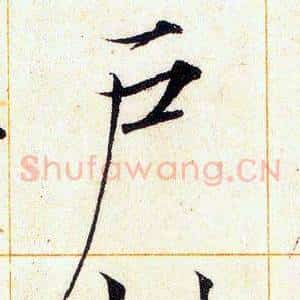 戶
Shufawang.CN